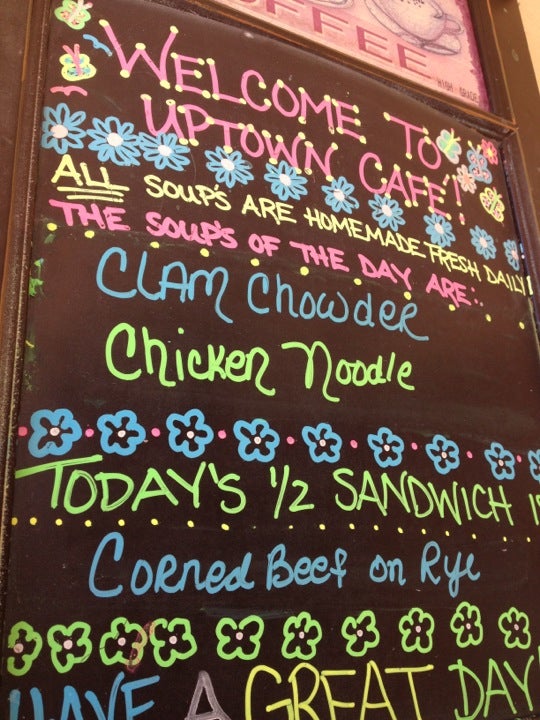 COFFEE
HIGH GRADE
WELCOME TO
UPTOWN CAFE!
ALL SOUP'S ARE HOMEMADE FRESH DAILY!
THE SOUP'S OF THE DAY ARE:..
CLAM Chowder
Chicken Noodle
TODAY'S 1/2 SANDWICH
Corned Beef on Rye
HAVE A GREAT DAY!